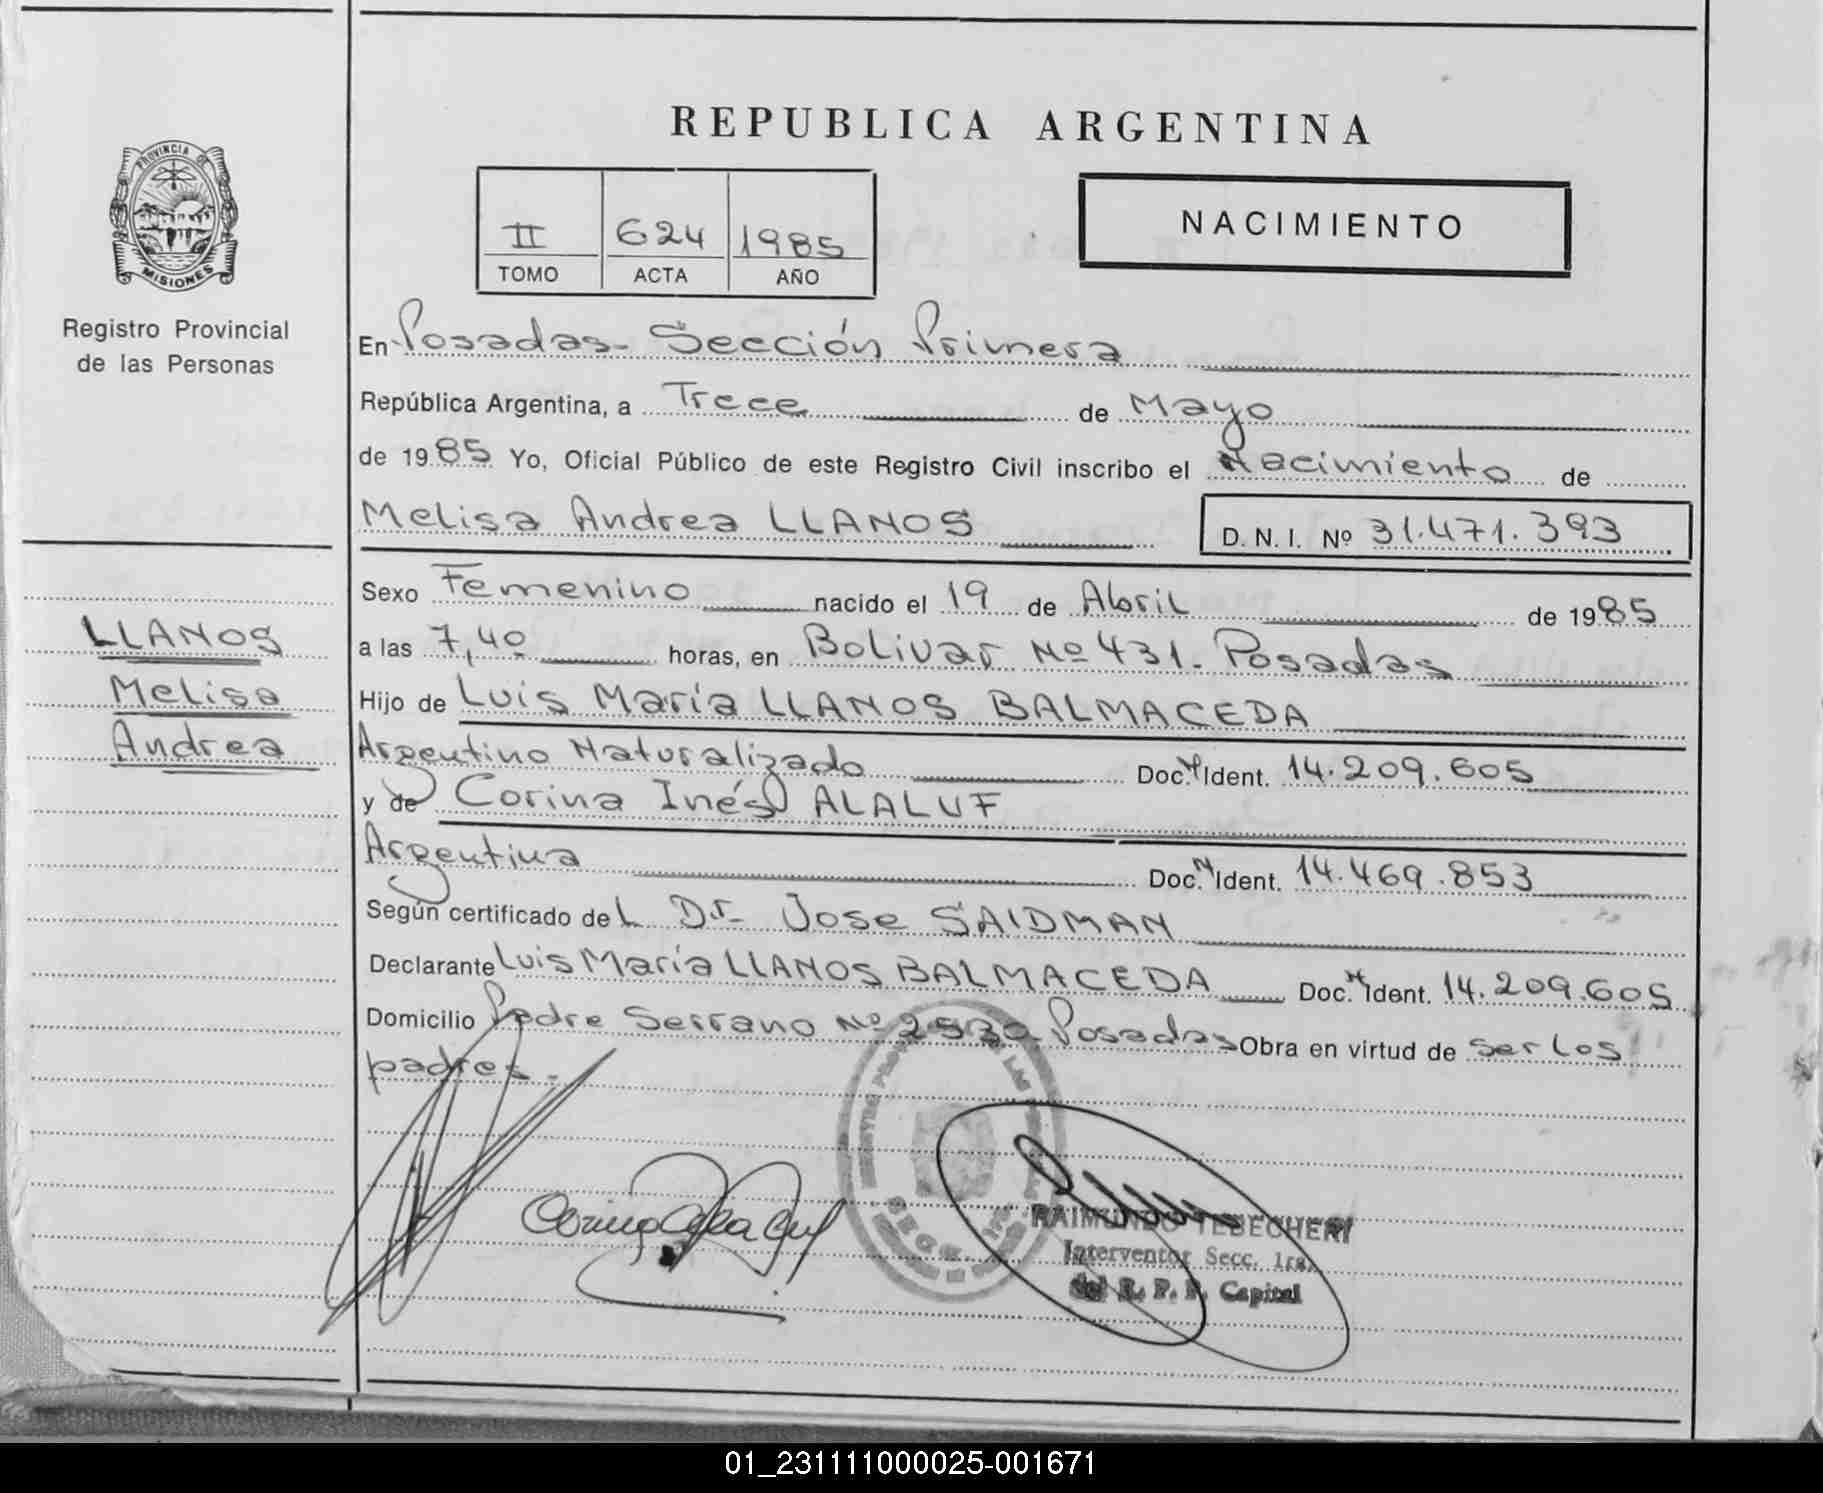 REPUBLICA ARGENTINA
PROVINCIA DE
MISIONES
Registro Provincial
de las Personas
II 624 1985
TOMO ACTA AÑO
NACIMIENTO
En Posadas- Sección Primera
República Argentina, a Trece de Mayo
de 1985 Yo, Oficial Público de este Registro Civil inscribo el Nacimiento de
Melisa Andrea LLANOS D.N.I. Nº 31.471.393
Sexo Femenino nacido el 19 de Abril de 1985
a las 7,40 horas, en Bolivar Nº 431. Posadas
Hijo de Luis María LLANOS BALMACEDA
Argentino Naturalizado Doc. N Ident. 14.209.605
y de Corina Inés ALALUF
Argentina Doc. N Ident. 14.469.853
Según certificado del Dr. Jose SAIDMAN
Declarante Luis María LLANOS BALMACEDA Doc. N Ident. 14.209.605
Domicilio Padre Serrano Nº 2530. Posadas Obra en virtud de ser los
padres.
LLANOS
Melisa
Andrea
Corina Alaluf
RAIMUNDO TEBECHERI
Interventor Secc. 1ra.
del R. P. P. Capital
01_231111000025-001671